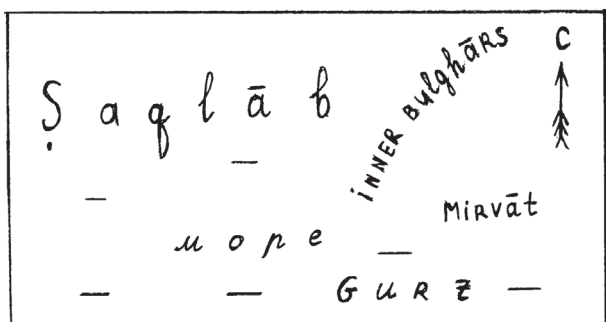 Ṣaqlāb
INNER BULGHĀRS
С
MIRVĀT
море
GURZ